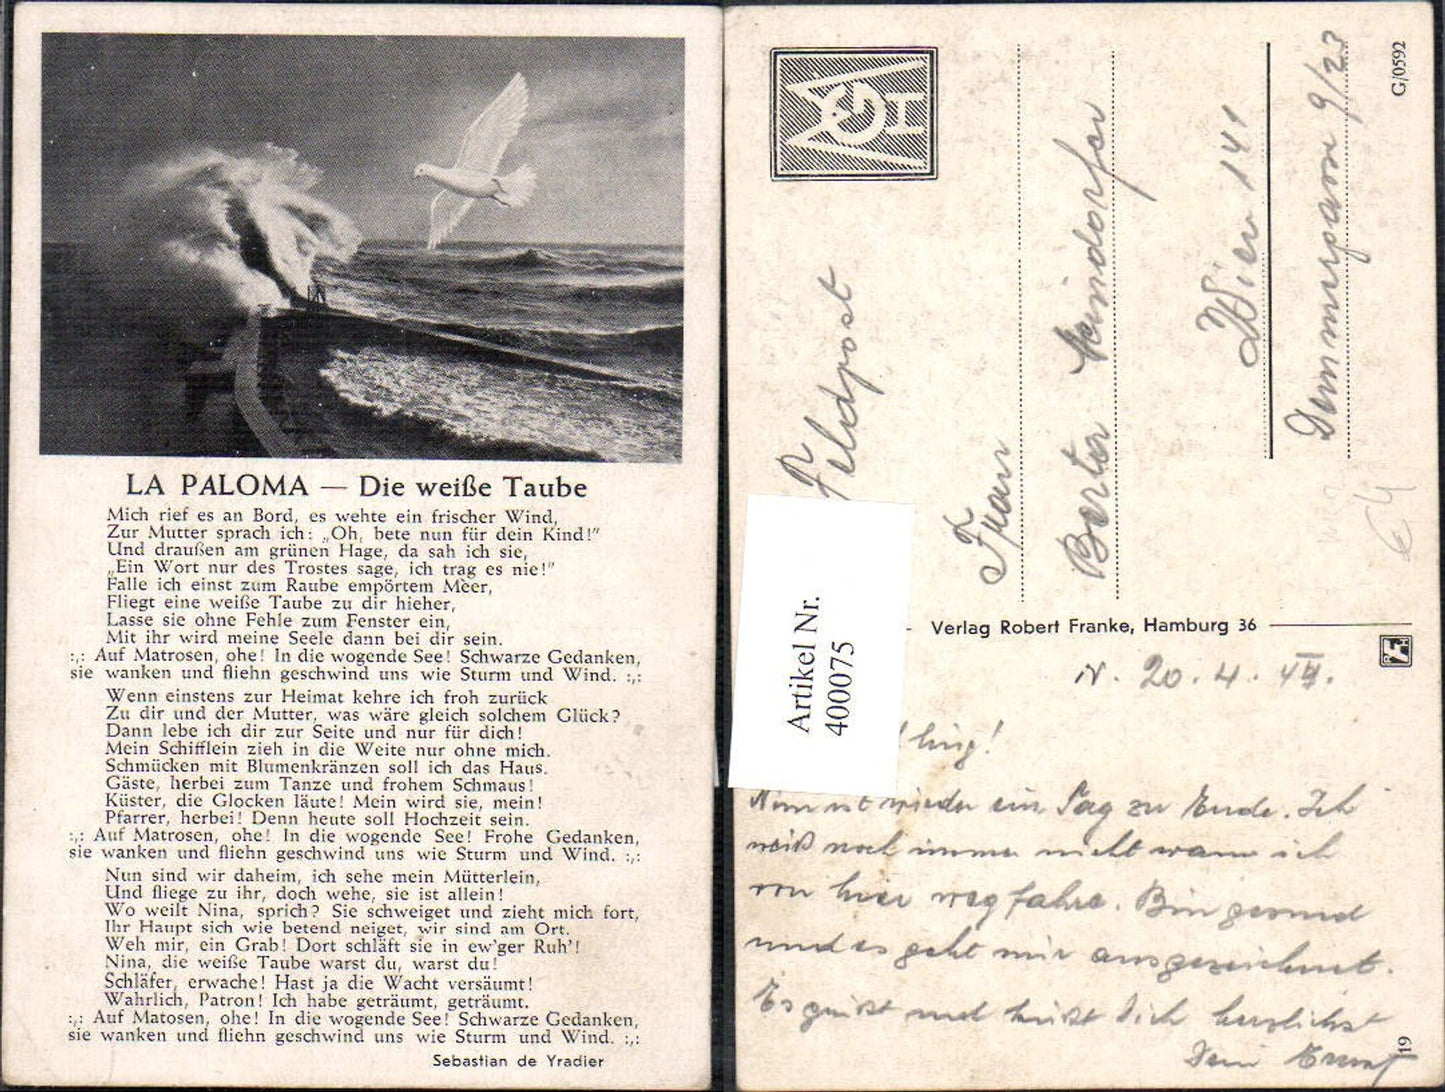 LA PALOMA — Die weiße Taube
Mich rief es an Bord, es wehte ein frischer Wind,
Zur Mutter sprach ich: „Oh, bete nun für dein Kind!"
Und draußen am grünen Hage, da sah ich sie,
„Ein Wort nur des Trostes sage, ich trag es nie!"
Falle ich einst zum Raube empörtem Meer,
Fliegt eine weiße Taube zu dir hieher,
Lasse sie ohne Fehle zum Fenster ein,
Mit ihr wird meine Seele dann bei dir sein.
:,: Auf Matrosen, ohe! In die wogende See! Schwarze Gedanken,
sie wanken und fliehn geschwind uns wie Sturm und Wind. :,:
Wenn einstens zur Heimat kehre ich froh zurück
Zu dir und der Mutter, was wäre gleich solchem Glück?
Dann lebe ich dir zur Seite und nur für dich!
Mein Schifflein zieh in die Weite nur ohne mich.
Schmücken mit Blumenkränzen soll ich das Haus.
Gäste, herbei zum Tanze und frohem Schmaus!
Küster, die Glocken läute! Mein wird sie, mein!
Pfarrer, herbei! Denn heute soll Hochzeit sein.
:,: Auf Matrosen, ohe! In die wogende See! Frohe Gedanken,
sie wanken und fliehn geschwind uns wie Sturm und Wind. :,:
Nun sind wir daheim, ich sehe mein Mütterlein,
Und fliege zu ihr, doch wehe, sie ist allein!
Wo weilt Nina, sprich? Sie schweiget und zieht mich fort,
Ihr Haupt sich wie betend neiget, wir sind am Ort.
Weh mir, ein Grab! Dort schläft sie in ew'ger Ruh'!
Nina, die weiße Taube warst du, warst du!
Schläfer, erwache! Hast ja die Wacht versäumt!
Wahrlich, Patron! Ich habe geträumt, geträumt.
:,: Auf Matosen, ohe! In die wogende See! Schwarze Gedanken,
sie wanken und fliehn geschwind uns wie Sturm und Wind. :,:
Sebastian de Yradier
Feldpost
Frau
Berta
Wien 141
9/23
G/0592
€ 4
Artikel Nr.
400075
Verlag Robert Franke, Hamburg 36
N. 20. 4.
ling!
Nun ist wieder ein Tag zu Ende. Ich
weiß noch immer nicht wann ich
von hier wegfahre. Bin gesund
und es geht mir ausgezeichnet.
Es grüßt und küßt Dich herzlichst
Dein Ernst
19